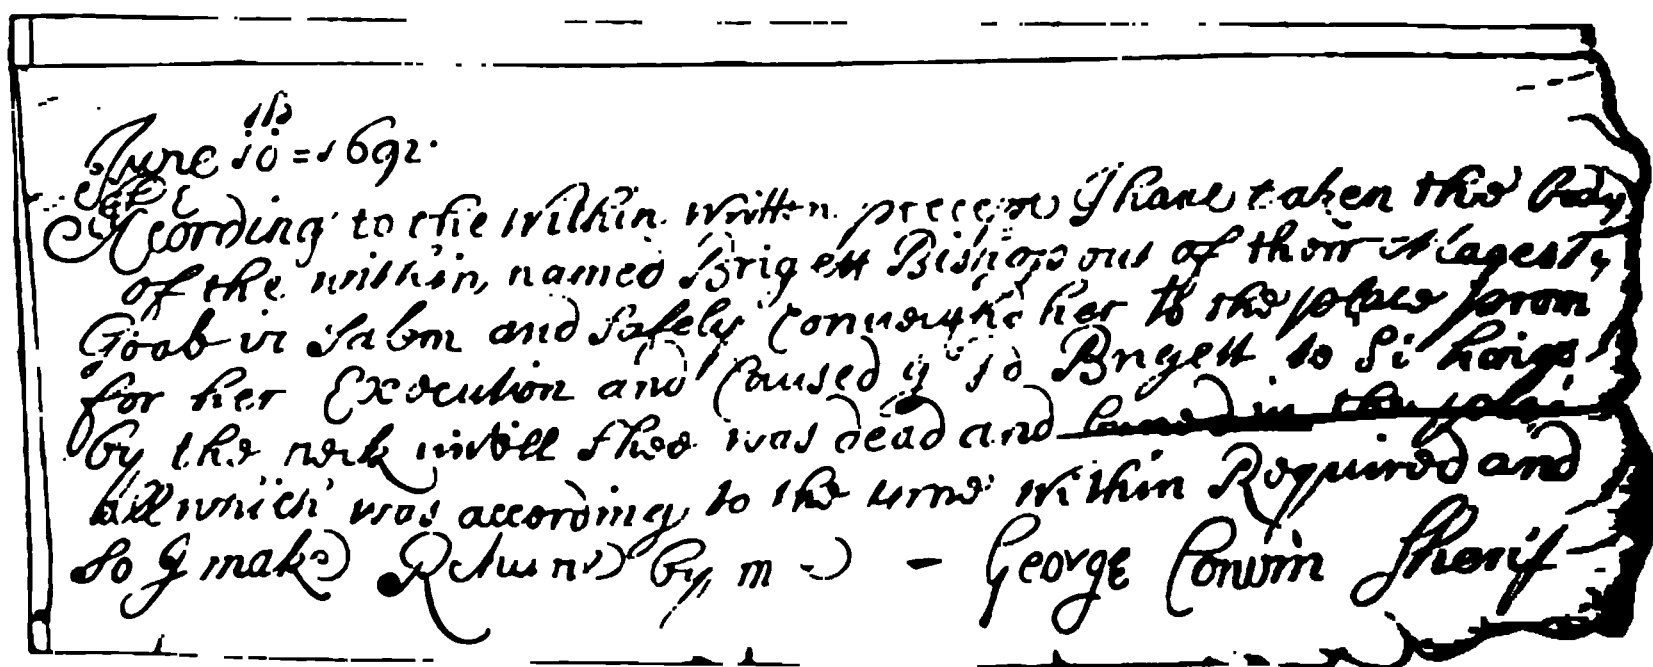 June 10th = 1692.
Acording to the within written precept I have taken the body
of the within named Brigett Bishop out of their Majesty
Goale in Salem and safely conueighd her to the place prouid
for her Execution and Caused ye sd Brigett to be hanged
by the neck untill shee was dead and buried in the place
all which was according to the time within Required and
So I make Returne by me - George Corwin Sherif